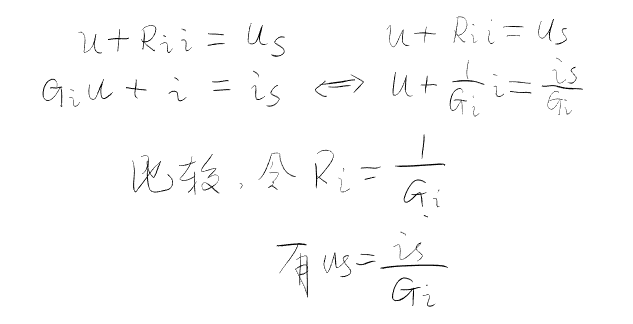 u + Rᵢi = uₛ    u + Rᵢi = uₛ
Gᵢu + i = iₛ ⟺ u + 1/Gᵢ i = iₛ/Gᵢ
比较，令 Rᵢ = 1/Gᵢ
有 uₛ = iₛ/Gᵢ